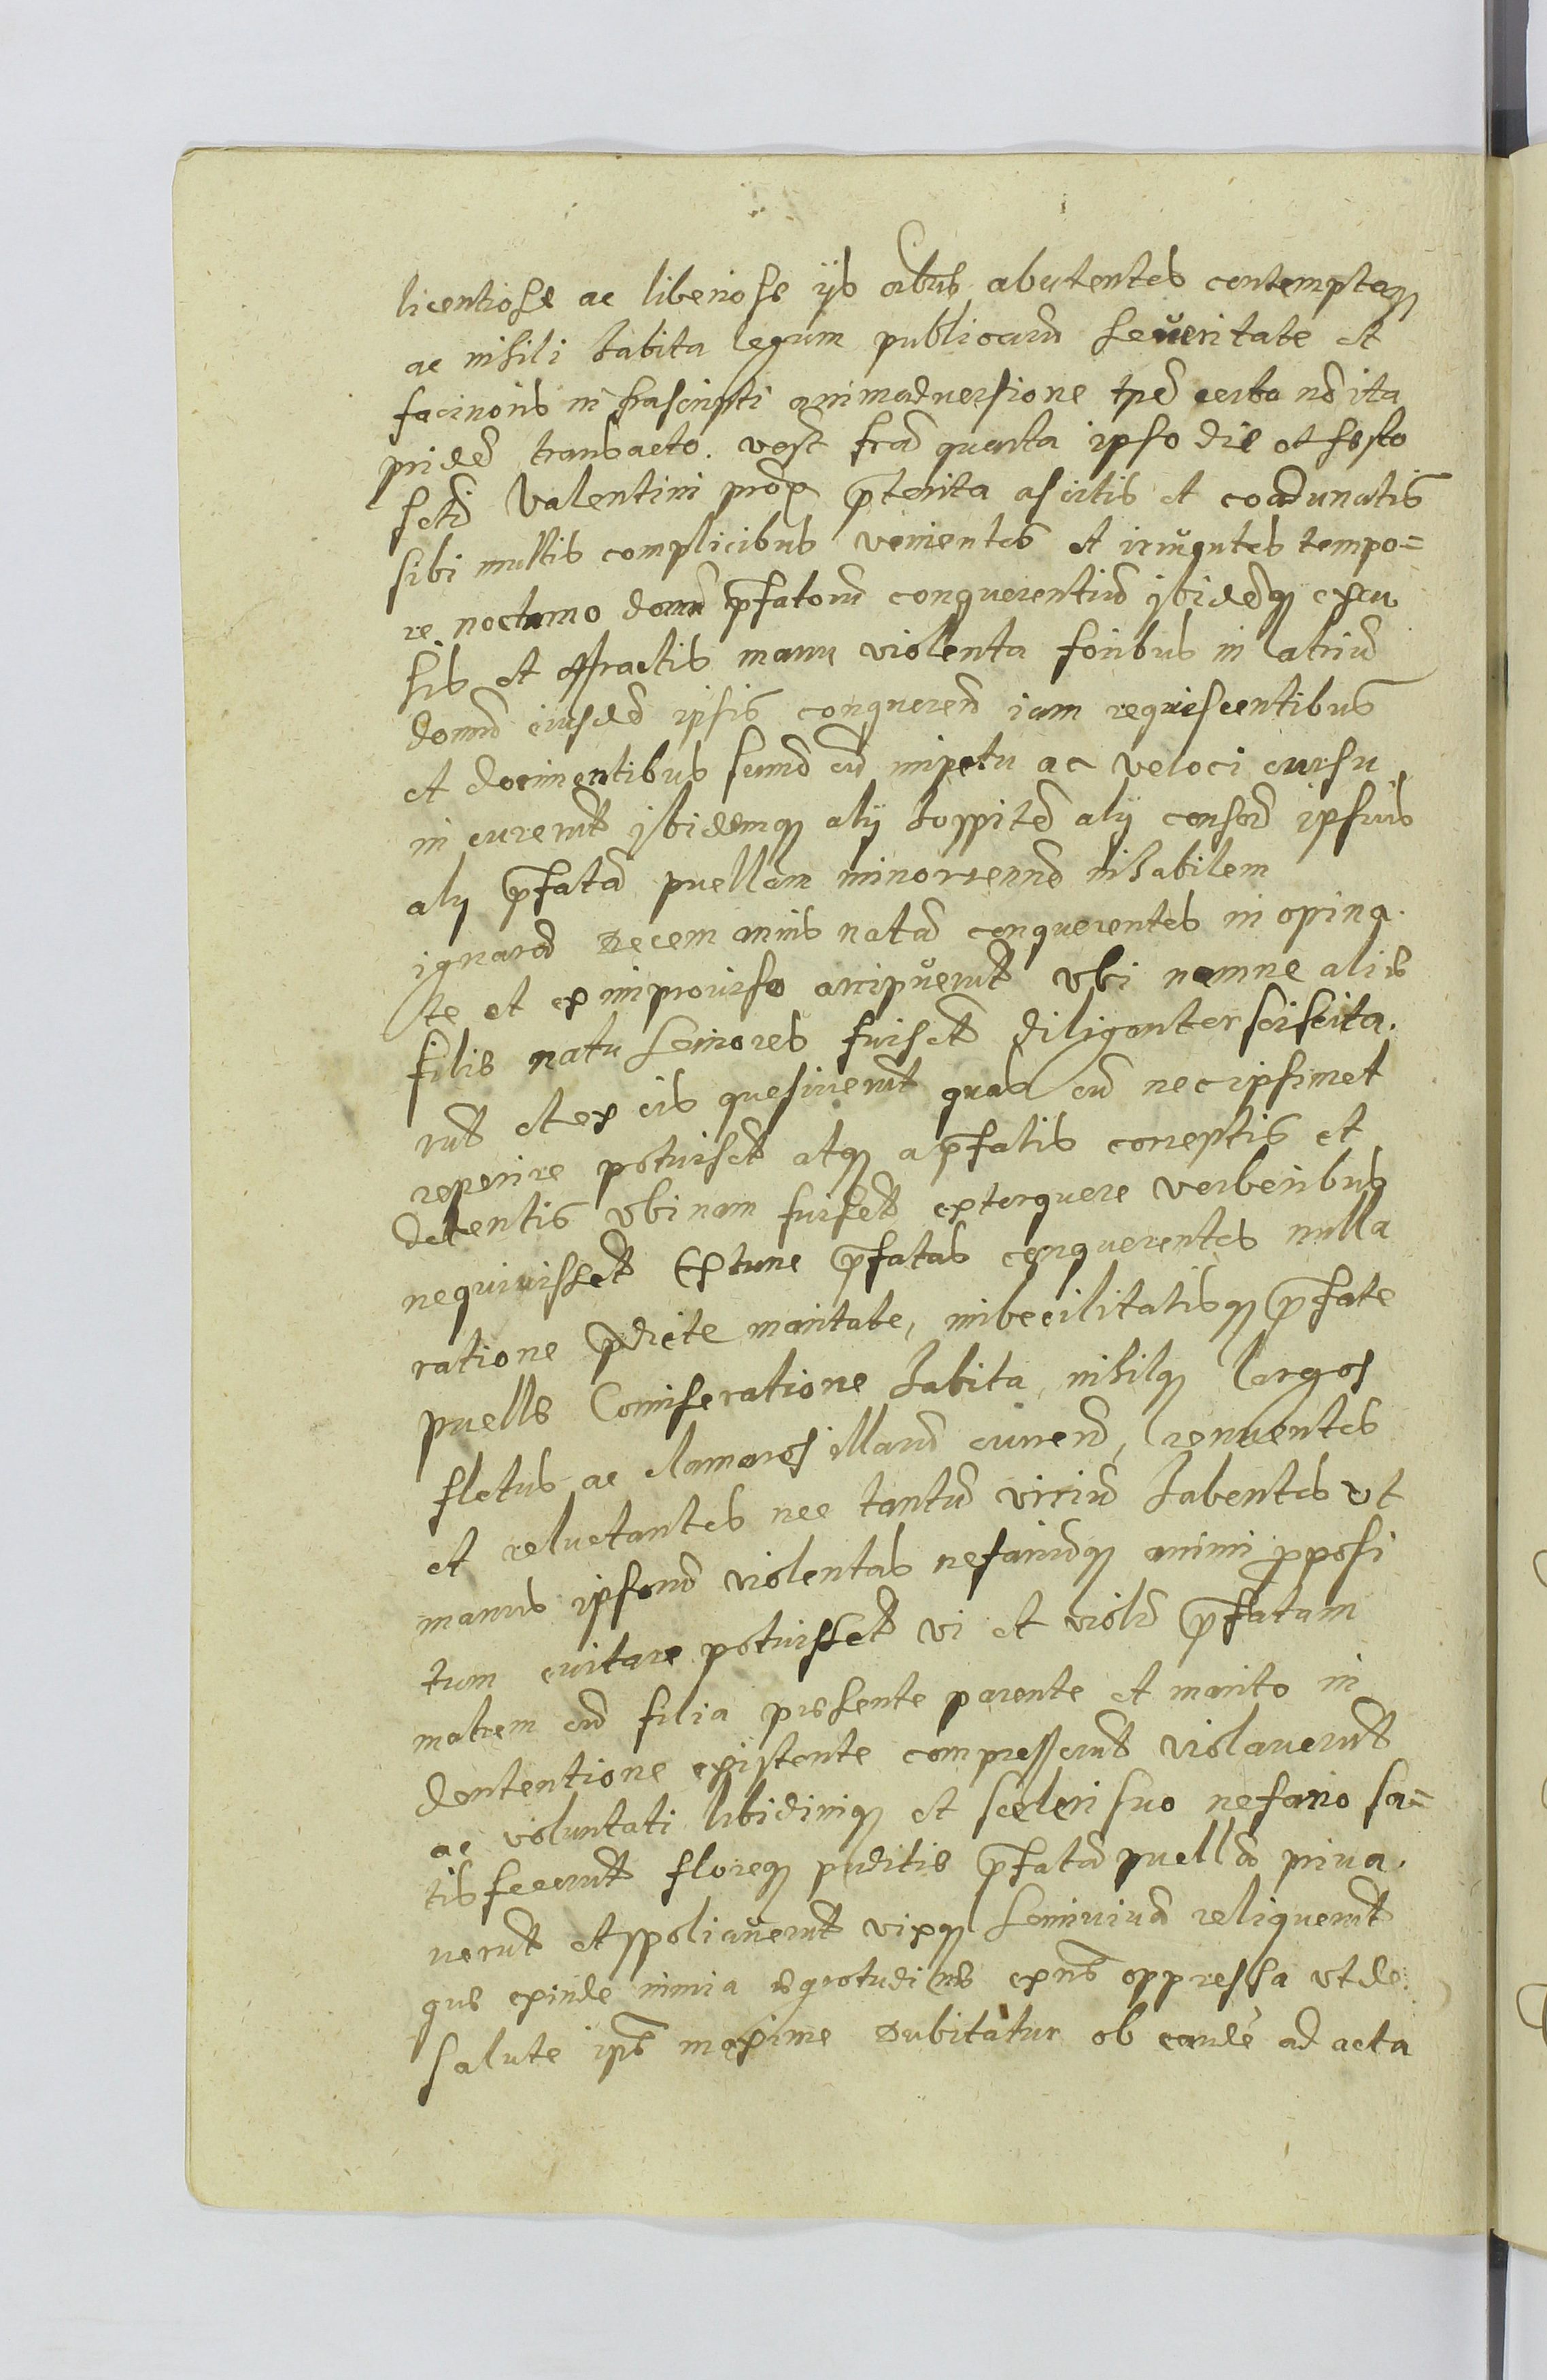 licentiose ac liberiose ijs oibus abutentes contemptaq
ac nihili habita legum publicarū seueritate et
facinoris infrascripti animaduersione tpe certo nō ita
pridē transacto. vest feria quarta ipso die et festo
scti Valentini prox p̄terita ascitis et coadunatis
sibi multis complicibus venientes et irruentes tempo=
re nocturno domū p̄fatorū conquerentiū ibidēq excu
sis et effractis manu violenta foribus in atriū
domus eiusdē ipsis conquerend iam requiescentibus
et dormientibus summo cū impetu ac veloci cursu
incurerunt ibidemq alij hospitē alij consortē ipsius
alij p̄fatā puellam minorennē inhabilem
ignarā decem annis natā conquerentes inopina.
te et ex improuiso arripuerunt vbi namne aliæ
filiæ natu seniores fuissēt diligenter sciscita.
runt et ex eis quesiuerunt quas cū nec ipsimet
reperire potuissēt atq a p̄fatis correptis et
detentis vbinam fuissēt extorquere verberibus
nequiuissēt Extunc p̄fatas conquerentes nulla
ratione p̄dicte maritate, imbecilitatisq p̄fate
puellæ Comiseratione habita, nihilq largos
fletus ac clamores illarū curend, renuentes
et reluctantes nec tantū viriū habentes vt
manus ipsorū violentas nefariūq animi pposi
tum euitare potuissēt vi et violen p̄fatam
matrem cū filia præsente parente et marito in
dententione existente compresserunt violauerunt
ac voluntati libidiniq et sceleri suo nefario sa=
tisfecerunt floreq puditis p̄fatā puellā priua.
uerunt et spoliauerunt vixq semiuiuā reliquerunt
quæ exinde nimia ægrotudine exns oppressa vt de
salute ips maxime dubitatur ob eandē ad acta